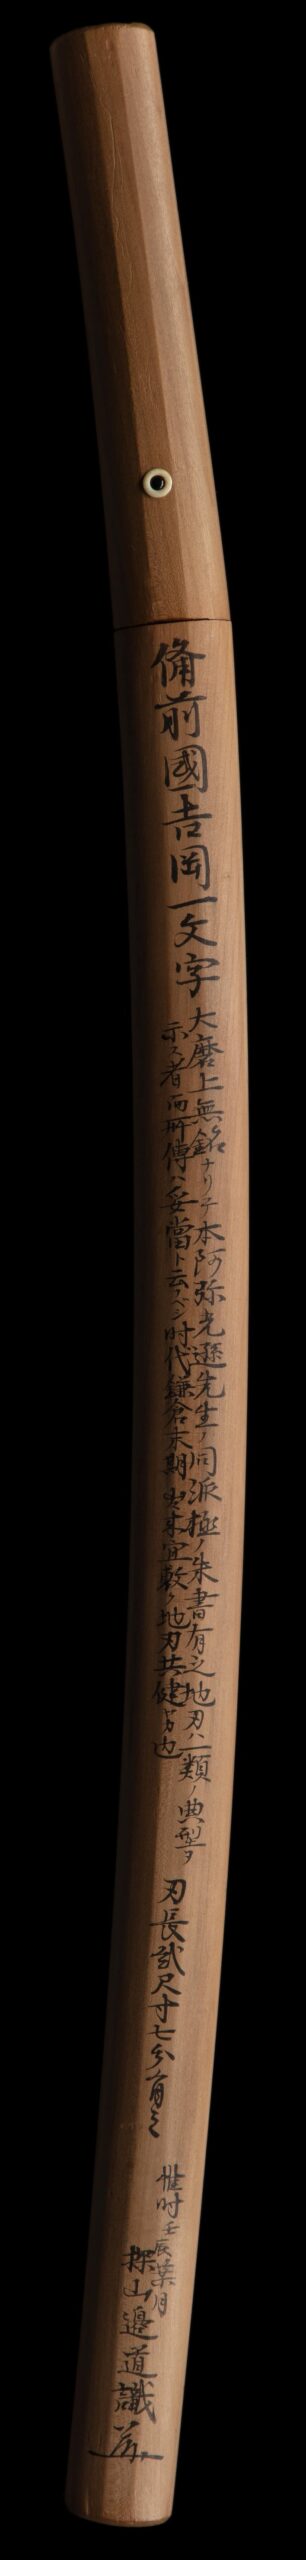 備前國吉岡一文字
大磨上無銘ナリテ本阿弥光遜先生ノ同派極ノ朱書有之地刃ハ一類ノ典型ヲ
示ス者而所傳ハ妥當ト云べシ时代鎌倉末期出来宜敷ク地刃共健全也
刃長貮尺寸七分有之
惟时壬辰葉月
探山邉道識